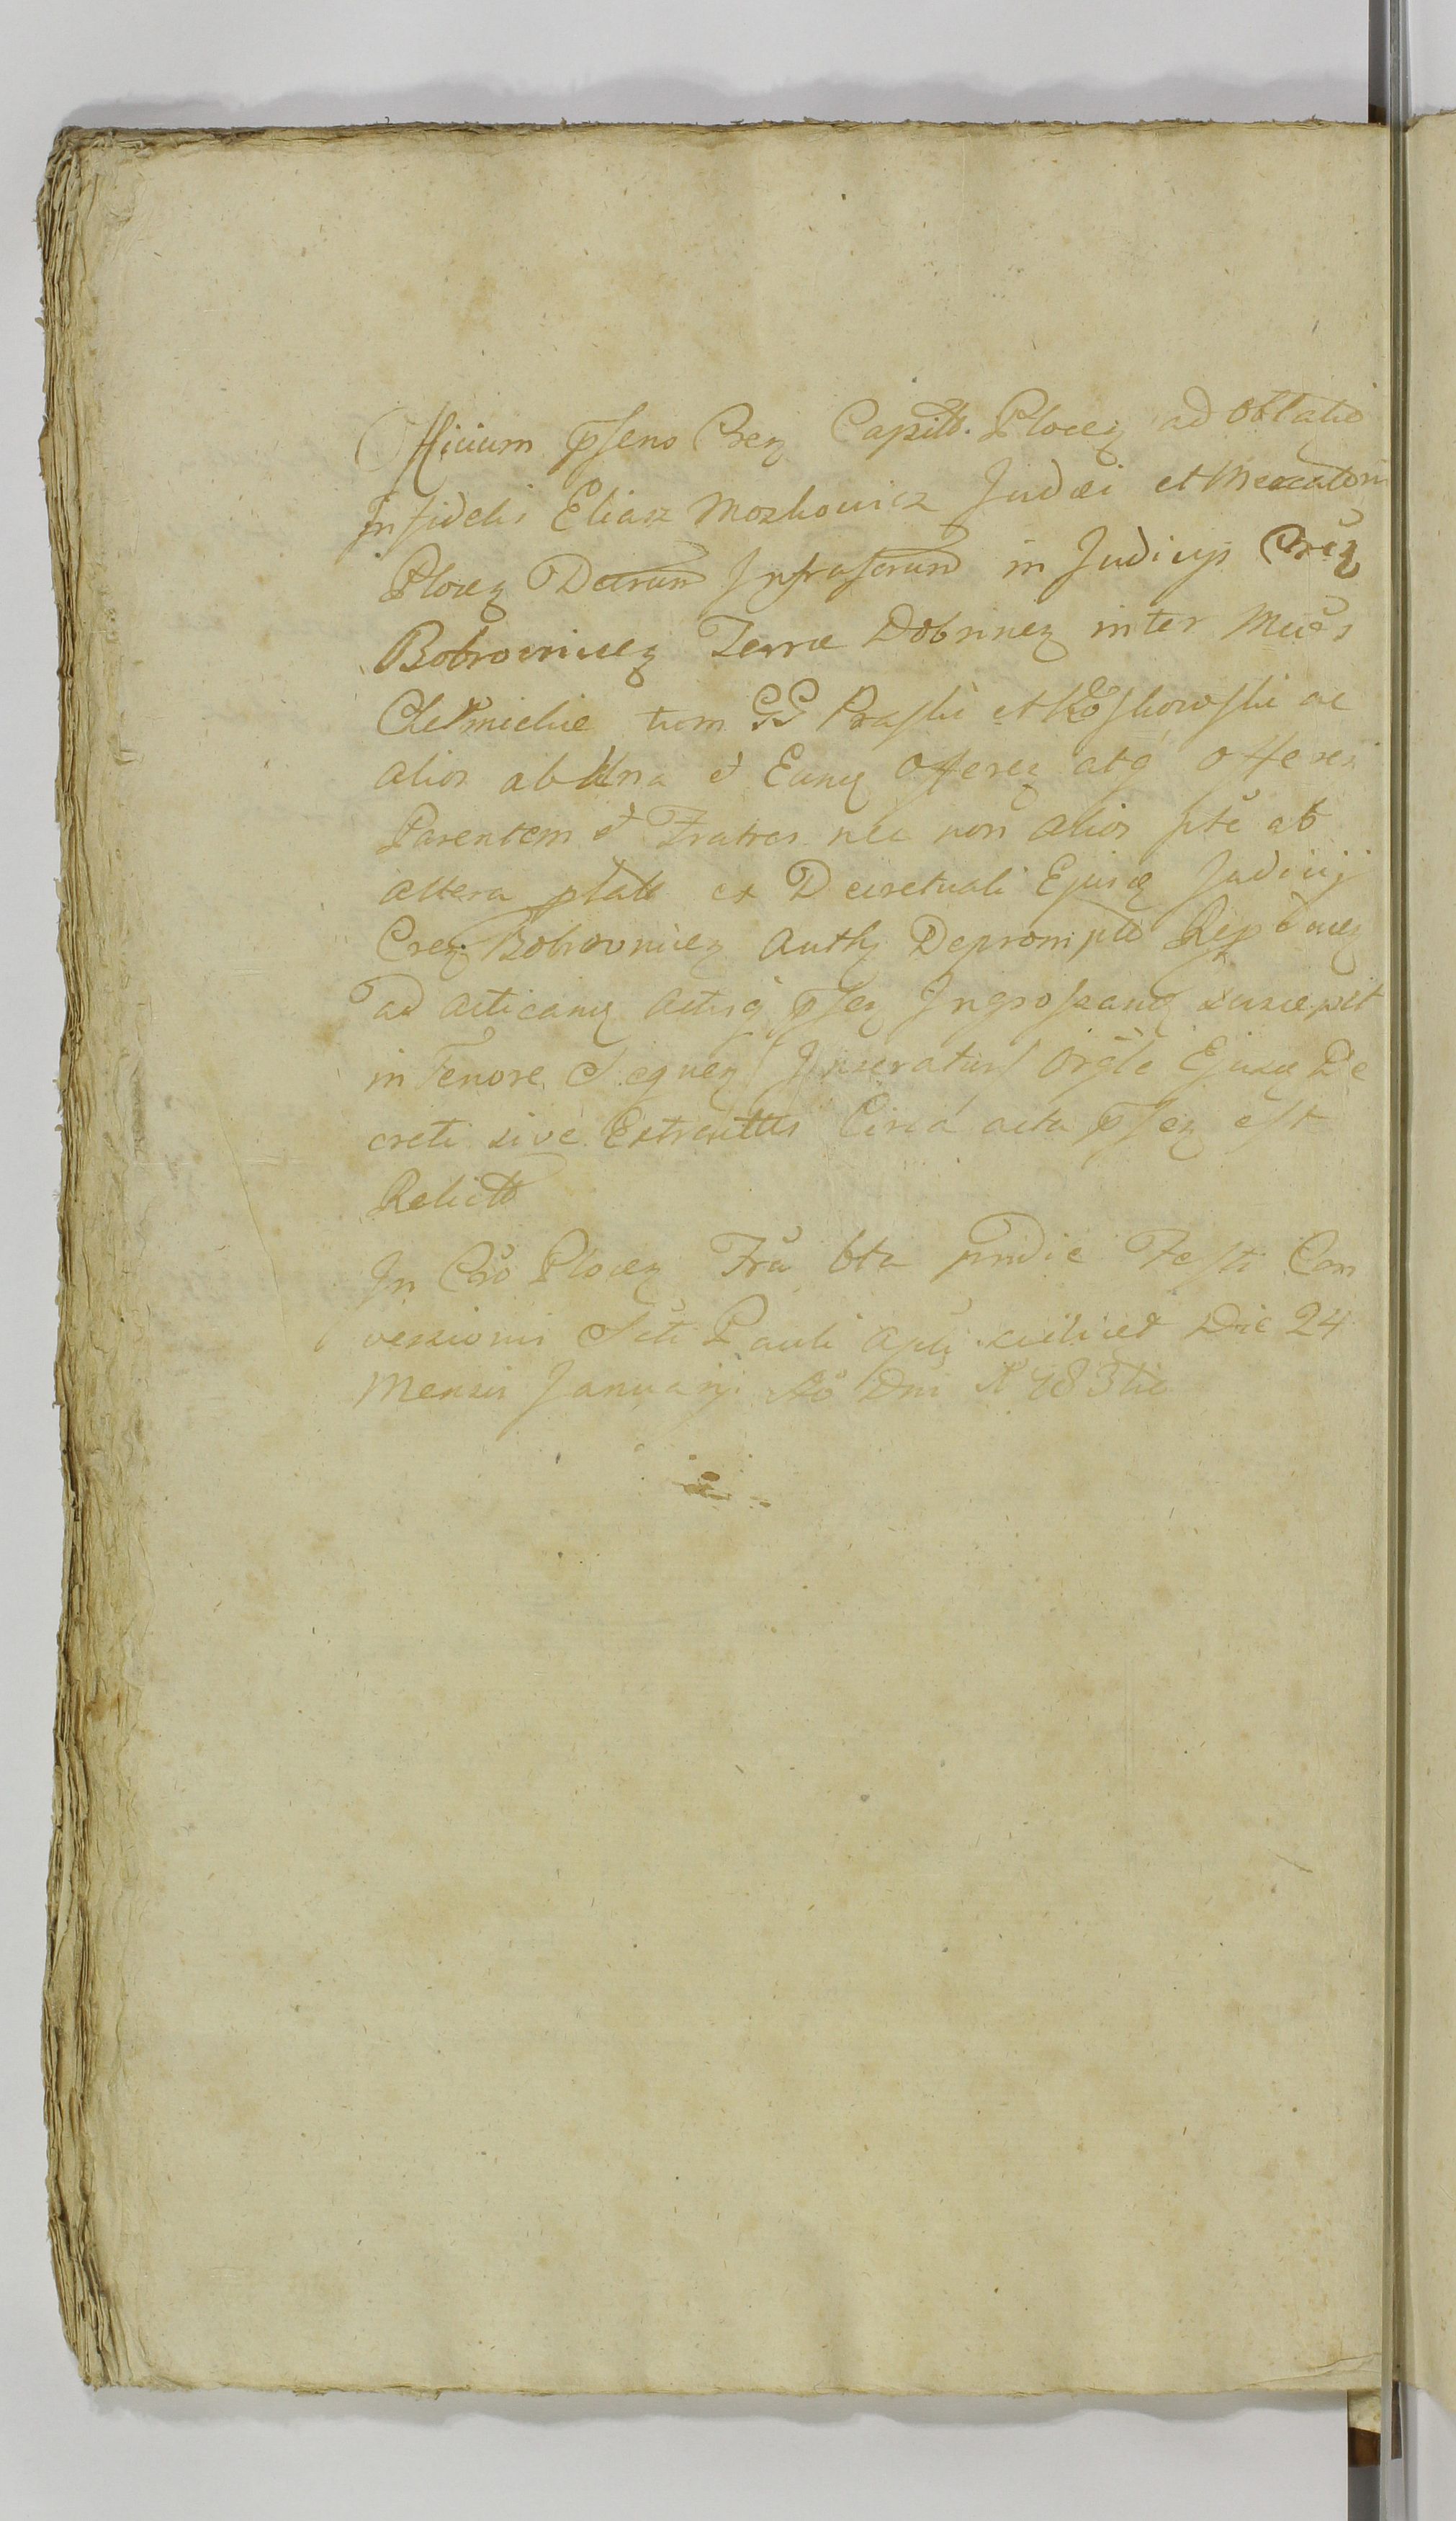 Officium pſens Crez Capitt. Plocez ad oblatio
Infidelis Eliasz Moszkowicz Judæi et Mercatoris
Plocez Decrum Infrascrum in Judicijs Crez
Bobrownicez Terræ Dobrinez inter Mcos
Chełmickie tum GG Praſki et ac
alios ab Una et Eunq Offerez atq Offeren
Parentem et Fratres nec non alios ab
altera ptatt ex Decretuali Ejusq Judicij
Crez Bobrownicez Authz Deprompto
ad acticanz actisq pſez Ingroſsanz suscepit
in Tenore Seqnez Inseratur Orgle Ejusq De
creti sive Extractus Circa acta pſez eſt
Relictt
In Cro Plocez Fra 6ta pridie Feſti Con
versionis Scti Pauli Apli scilicet Die 24
Mensis Januarij Ao Dni 1783tio